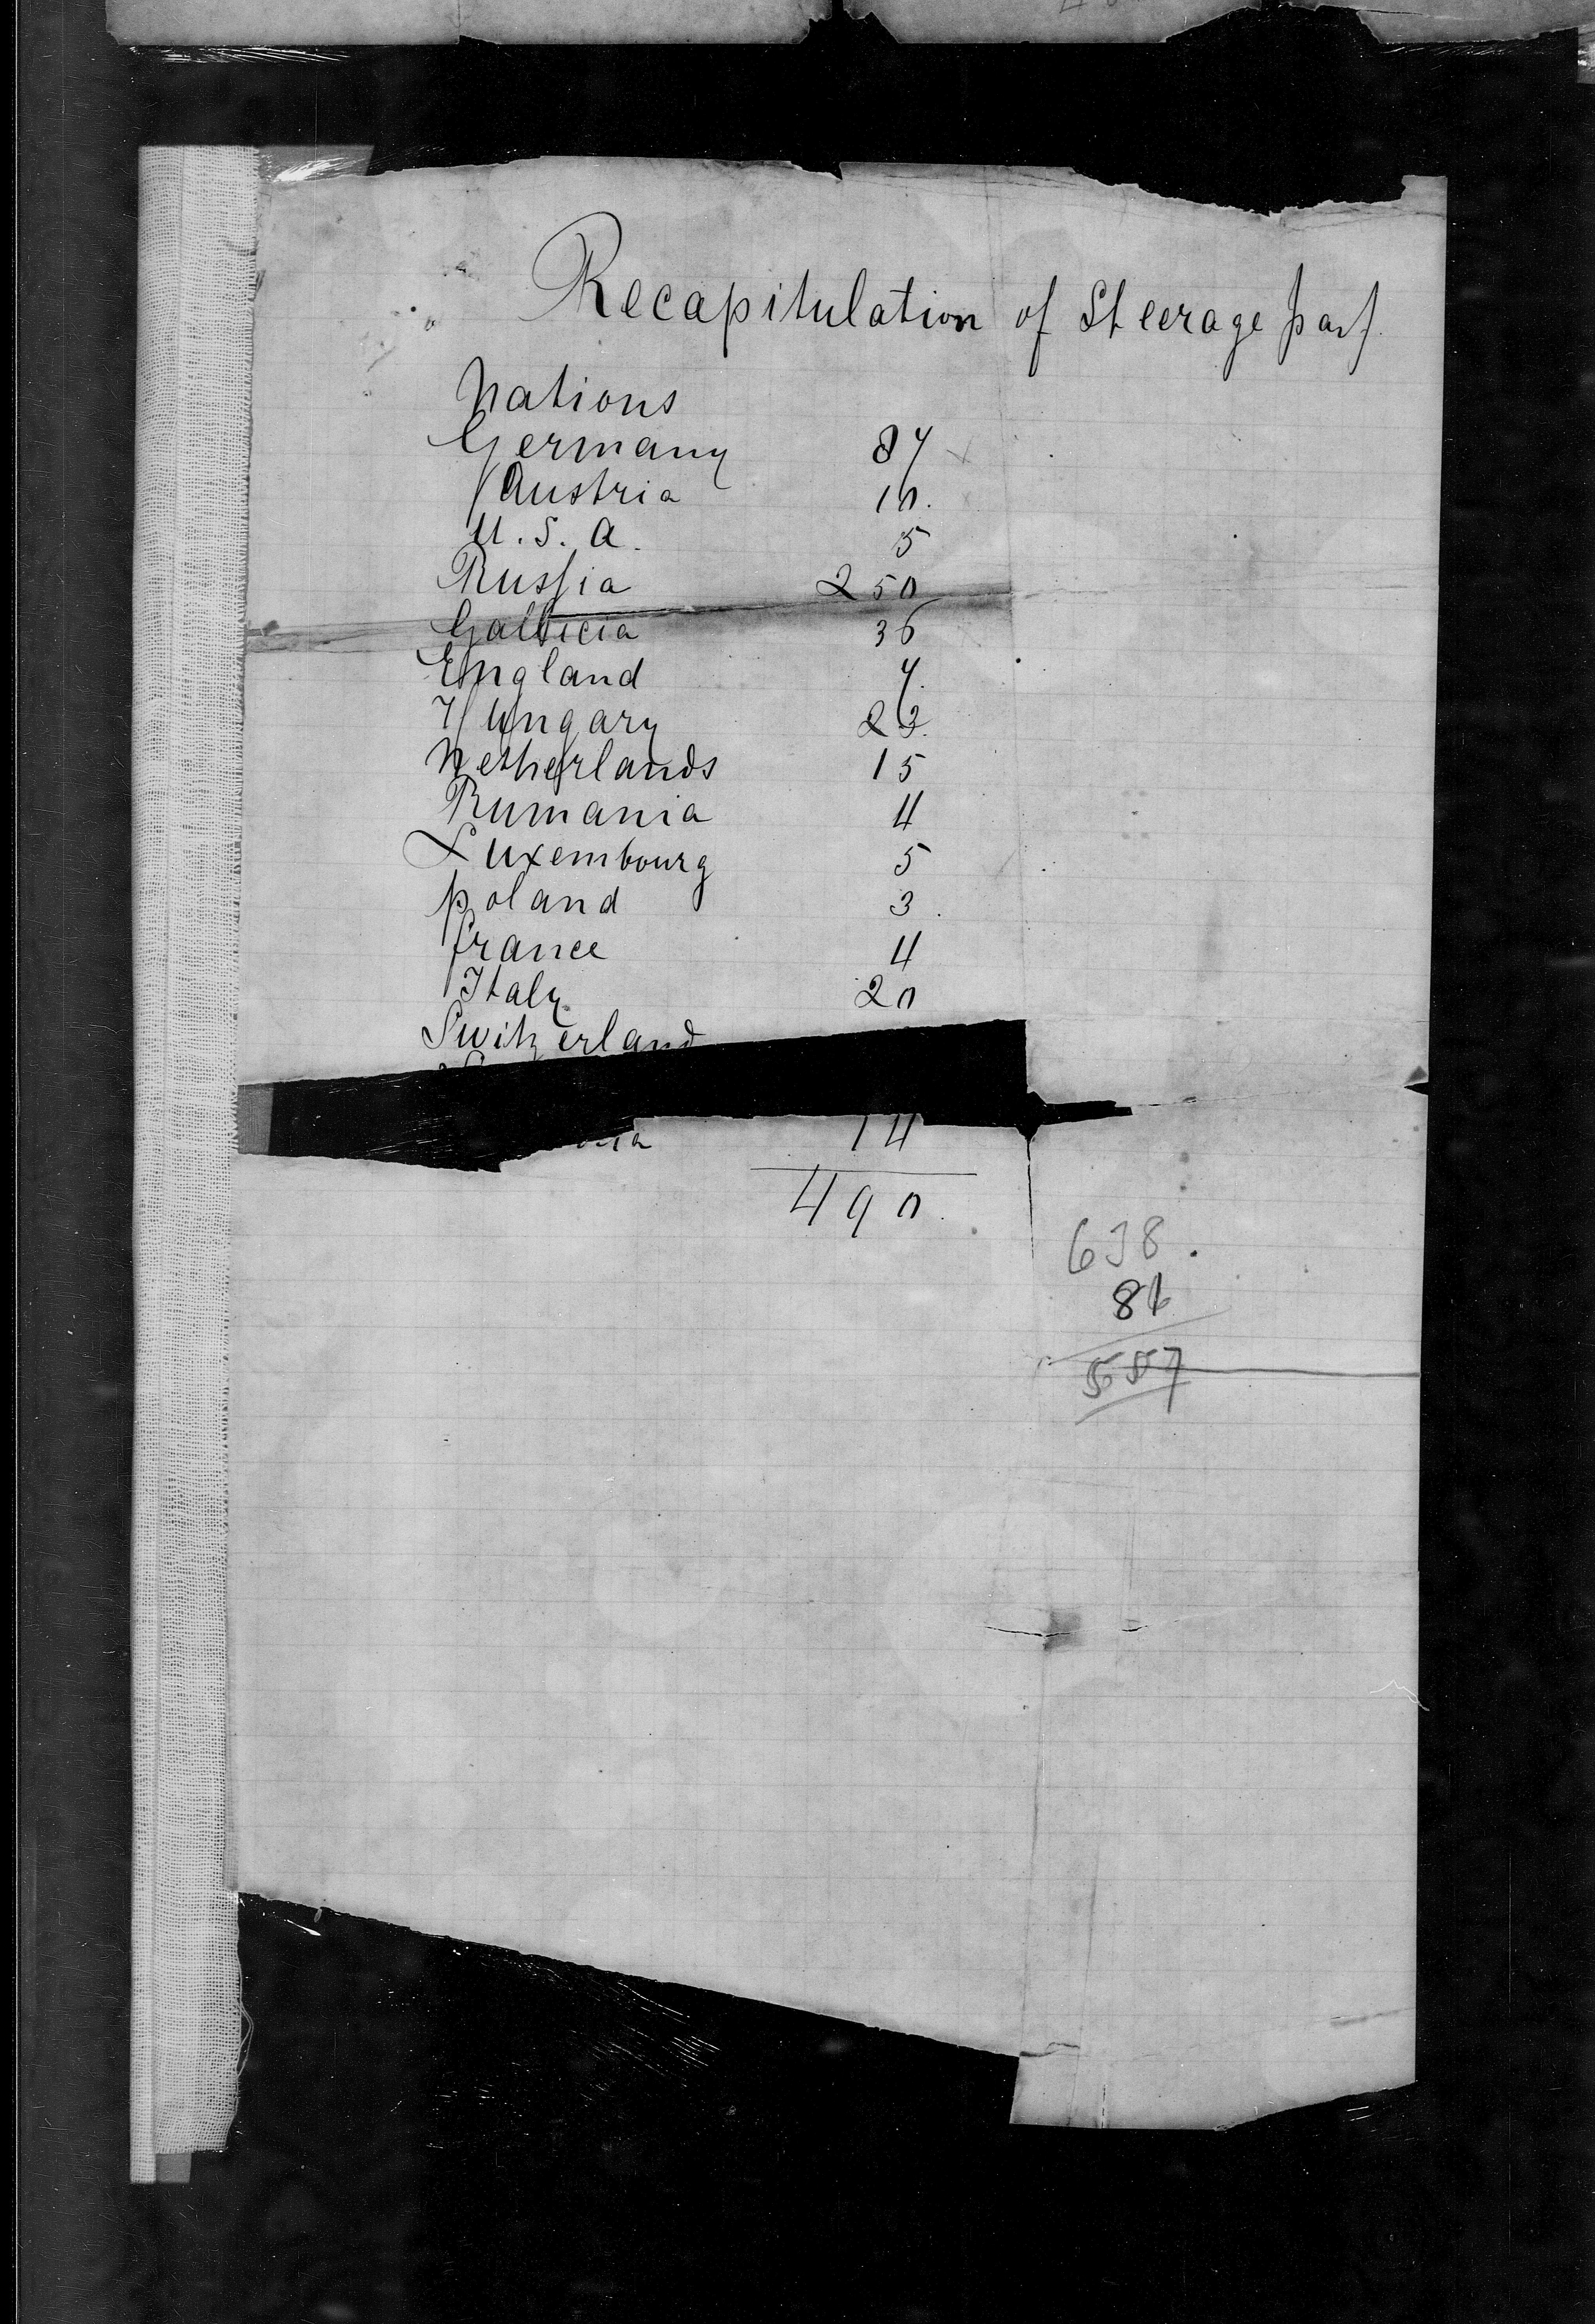 Recapitulation of Steerage pass.
Nations
Germany 87
Austria 10.
U.S.A. 5
Russia 250
Gallicia 36
England 7.
Hungary 23.
Netherlands 15
Rumania 4
Luxembourg 5
Poland 3.
france 4
Italy 20
Switzerland
14
490.
638.
81
557